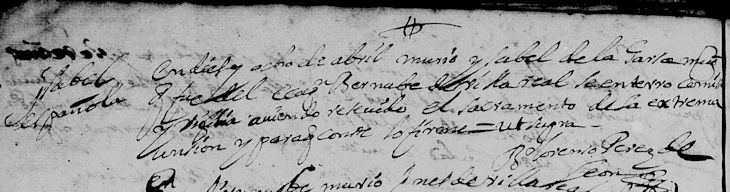 Ysabel
española
En diez y ocho de abril murio ysabel de la Garza muger
q fue del capn Bernabe de Villa real se enterro con misa
y vigilia aviendo resevido el sacramento de la extrema
unsion y para q conste lo firme = ut supra
Lorenso Perez de
Leon
murio Ines de villa